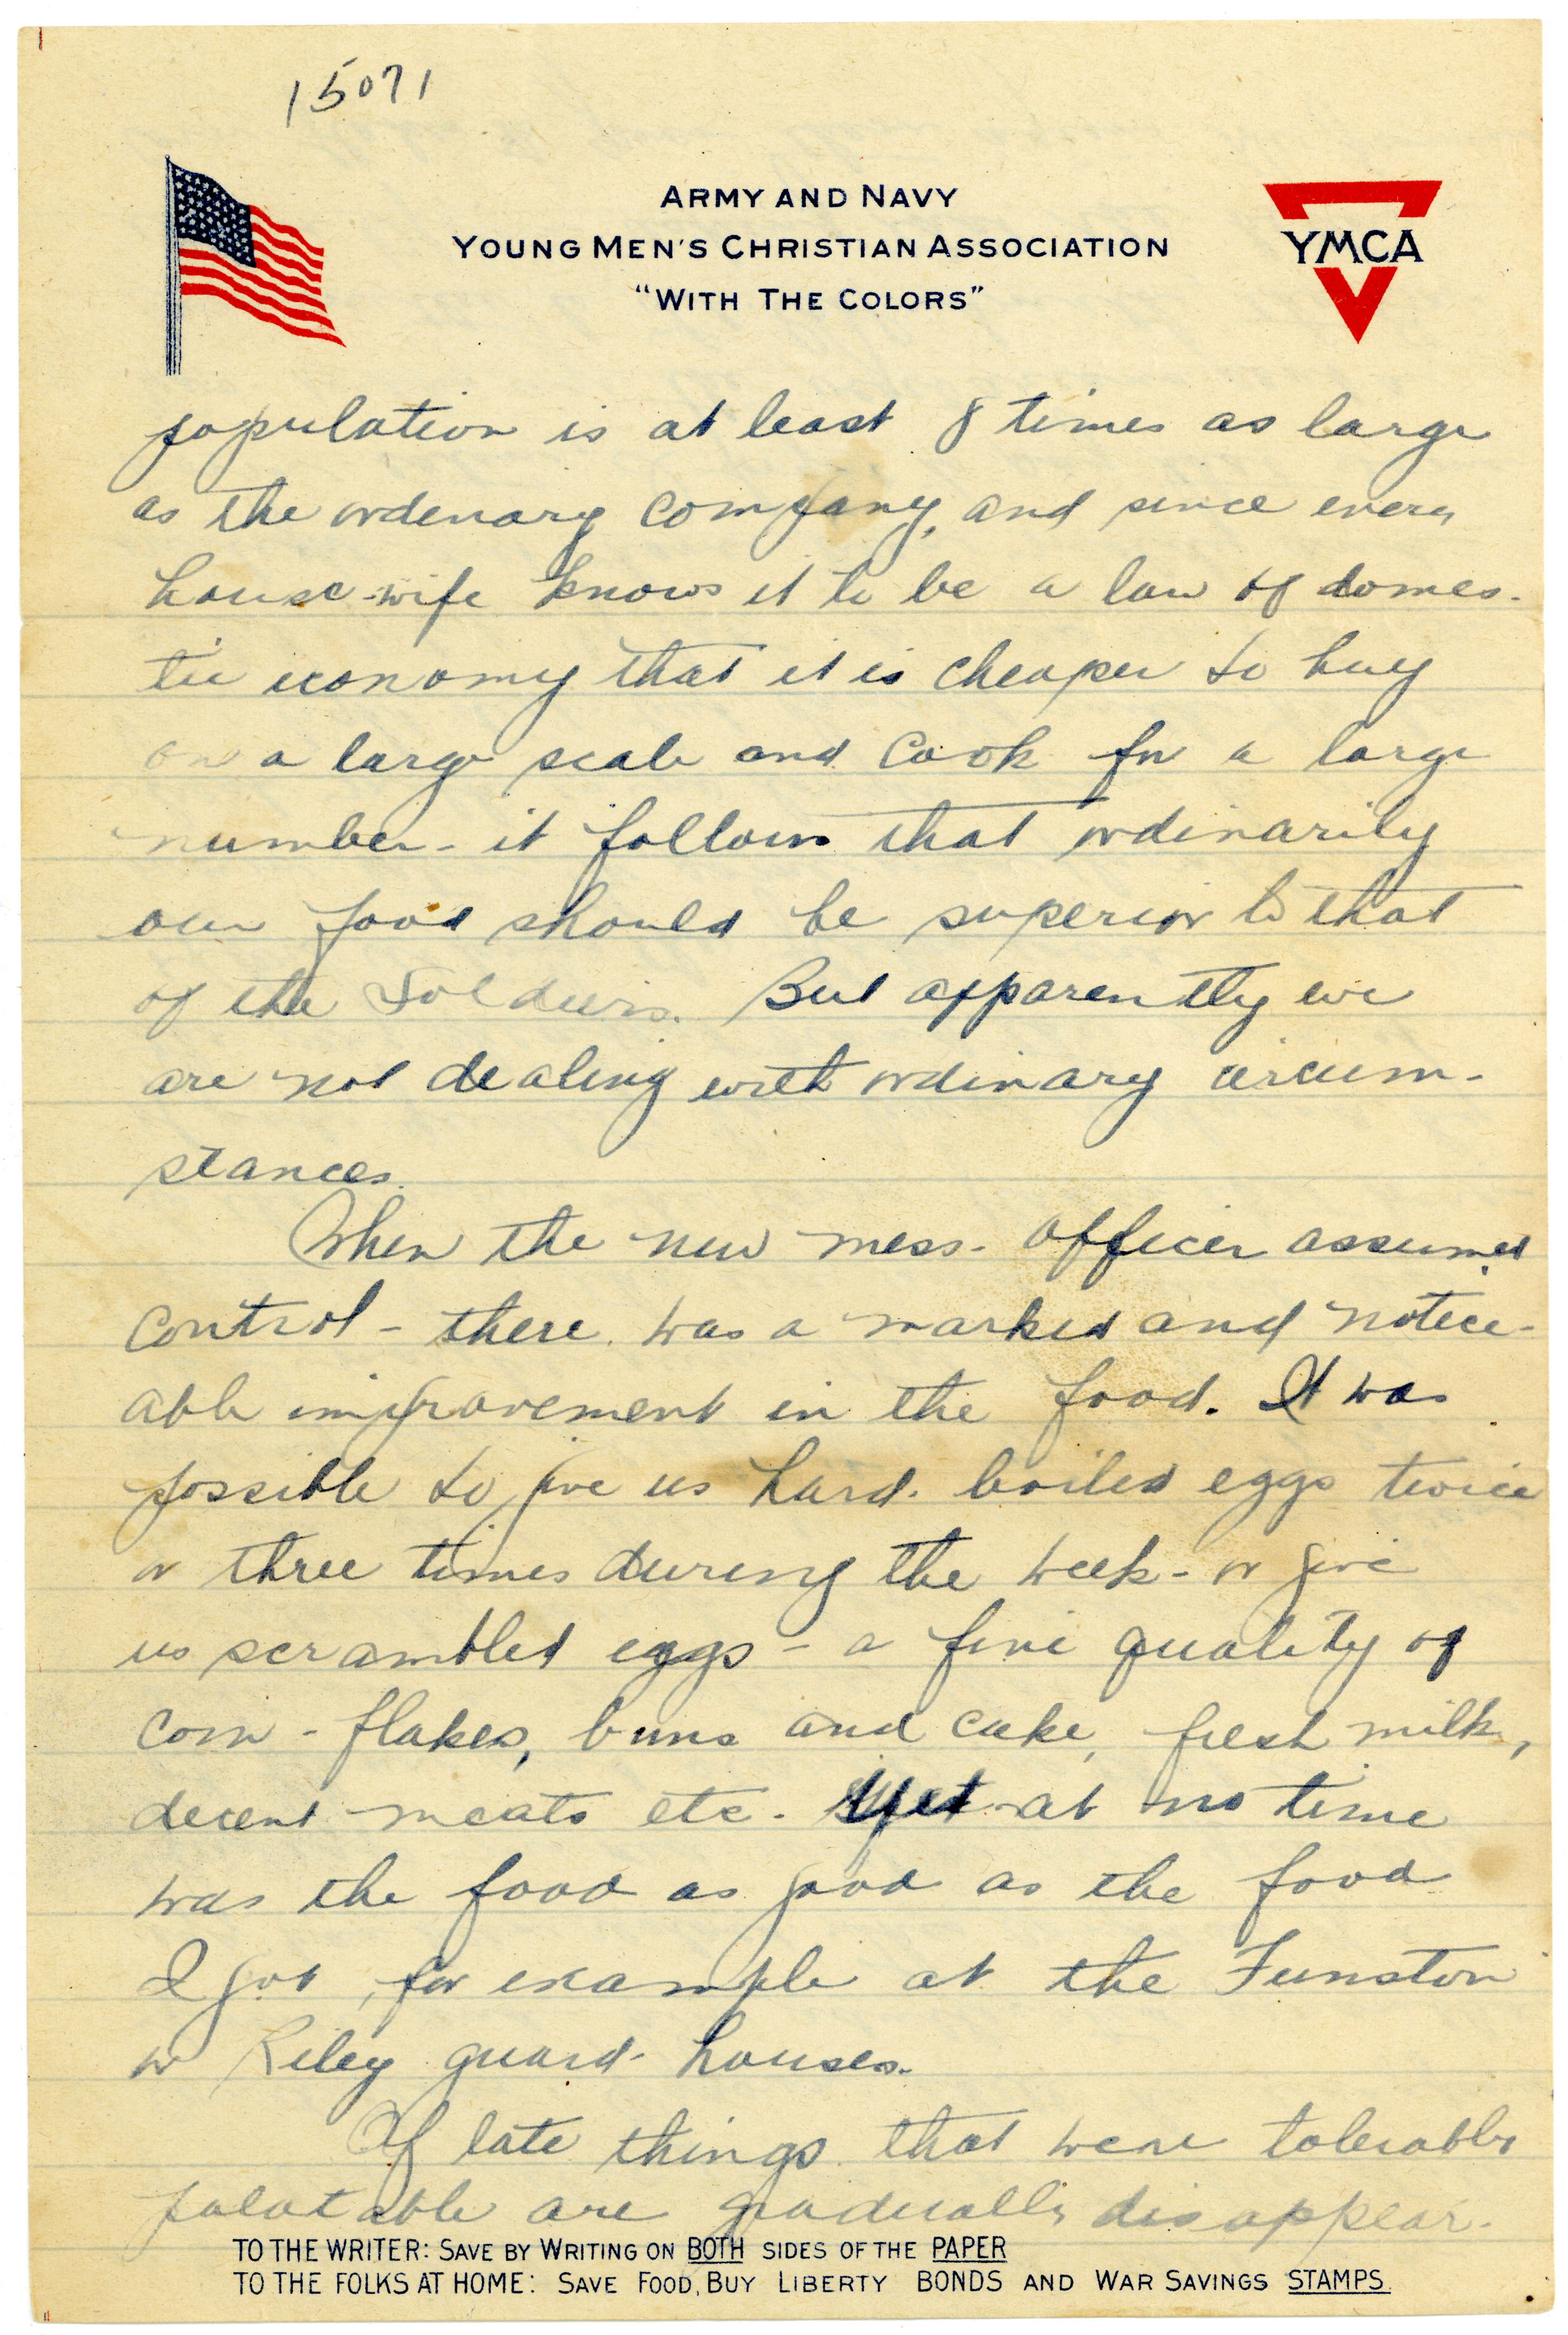 15071
ARMY AND NAVY
YOUNG MEN'S CHRISTIAN ASSOCIATION
"WITH THE COLORS"
YMCA
population is at least 8 times as large
as the ordenary company, and since every
house-wife knows it to be a law of domes-
tic economy that it is cheaper to buy
on a large scale and cook for a large
number - it follows that ordinarily
our food should be superior to that
of the soldiers. But apparently we
are not dealing with ordinary circum-
stances.
When the new mess-officer assumed
control - there was a marked and notice-
able improvement in the food. It was
possible to give us hard-boiled eggs twice
or three times during the week - or give
us scrambled eggs - a fine quality of
corn-flakes, buns and cake, fresh milk,
decent meats etc. Yet at no time
was the food as good as the food
I got, for example at the Funston
or Riley guard-houses.
Of late things that were tolerably
palatable are gradually disappear-
TO THE WRITER: SAVE BY WRITING ON BOTH SIDES OF THE PAPER
TO THE FOLKS AT HOME: SAVE FOOD, BUY LIBERTY BONDS AND WAR SAVINGS STAMPS.